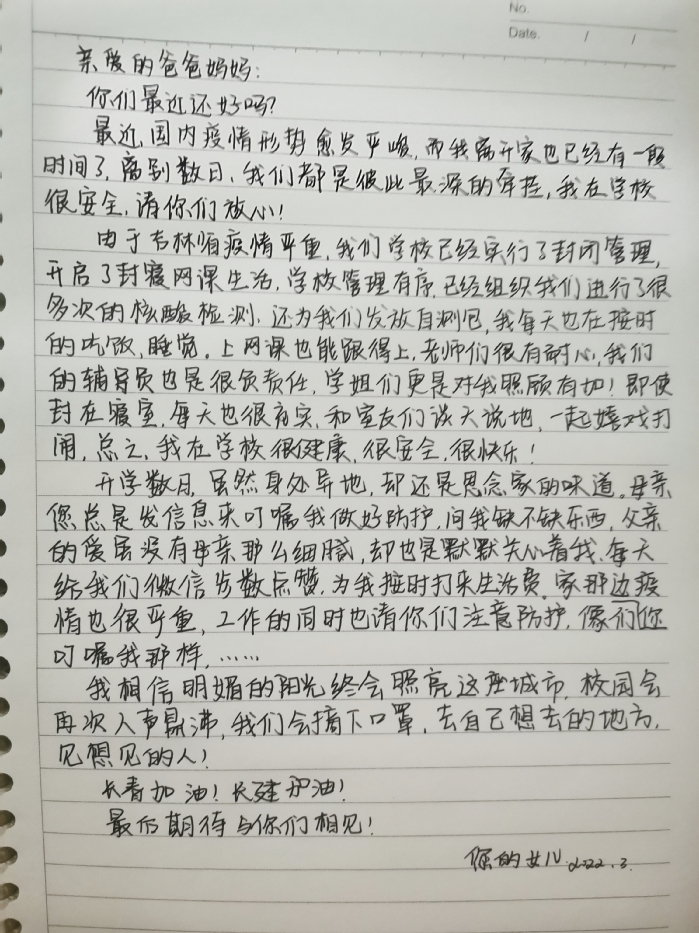 No.
Date. / /
亲爱的爸爸妈妈:
你们最近还好吗?
最近国内疫情形势愈发严峻,而我离开家也已经有一段
时间了,离别数日,我们都是彼此最深的牵挂,我在学校
很安全,请你们放心!
由于吉林省疫情严重,我们学校已经实行了封闭管理,
开启了封寝网课生活,学校管理有序,已经组织我们进行了很
多次的核酸检测,还为我们发放自测包,我每天也在按时
的吃饭,睡觉。上网课也能跟得上,老师们很有耐心,我们
的辅导员也是很负责任,学姐们更是对我照顾有加!即使
封在寝室,每天也很充实,和室友们谈天说地,一起嬉戏打
闹,总之,我在学校很健康,很安全,很快乐!
开学数月,虽然身处异地,却还是思念家的味道。母亲
您总是发信息来叮嘱我做好防护,问我缺不缺东西,父亲
的爱虽没有母亲那么细腻,却也是默默关心着我,每天
给我们微信步数点赞,为我按时打来生活费。家那边疫
情也很严重,工作的同时也请你们注意防护,像你们
叮嘱我那样,……
我相信明媚的阳光终会照亮这座城市,校园会
再次人声鼎沸,我们会摘下口罩,去自己想去的地方,
见想见的人!
长春加油!长建加油!
最后期待与你们相见!
您的女儿 2022.3.